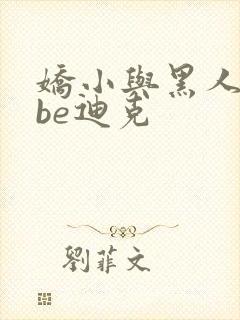 嬌小與黑人
be迪克
劉菲文